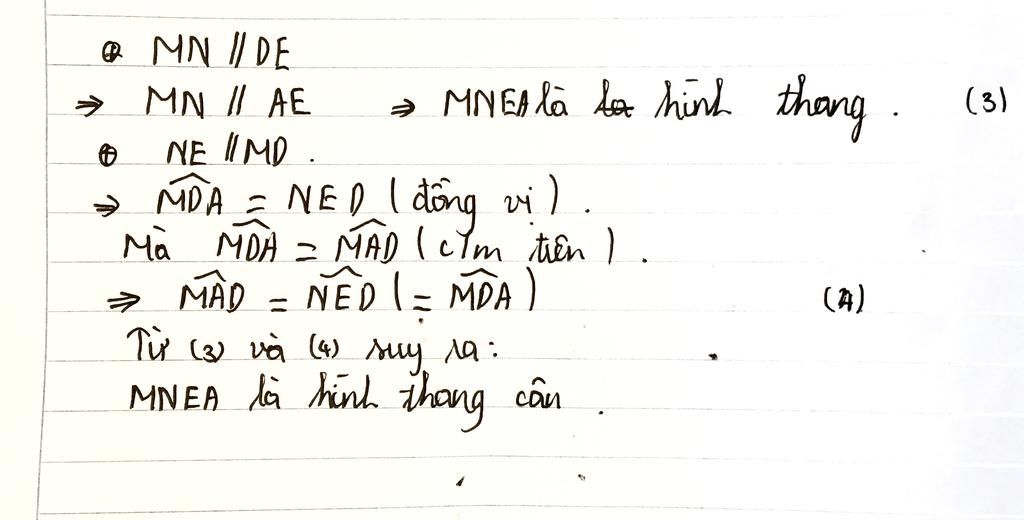 ⊕ MN // DE
⇒ MN // AE ⇒ MNEA là hình thang. (3)
⊕ NE // MD.
⇒ \widehat{MDA} = NED (đồng vị).
Mà \widehat{MDA} = \widehat{MAD} (c/m tiên).
⇒ \widehat{MAD} = \widehat{NED} (= \widehat{MDA}) (4)
Từ (3) và (4) suy ra:
MNEA là hình thang cân.